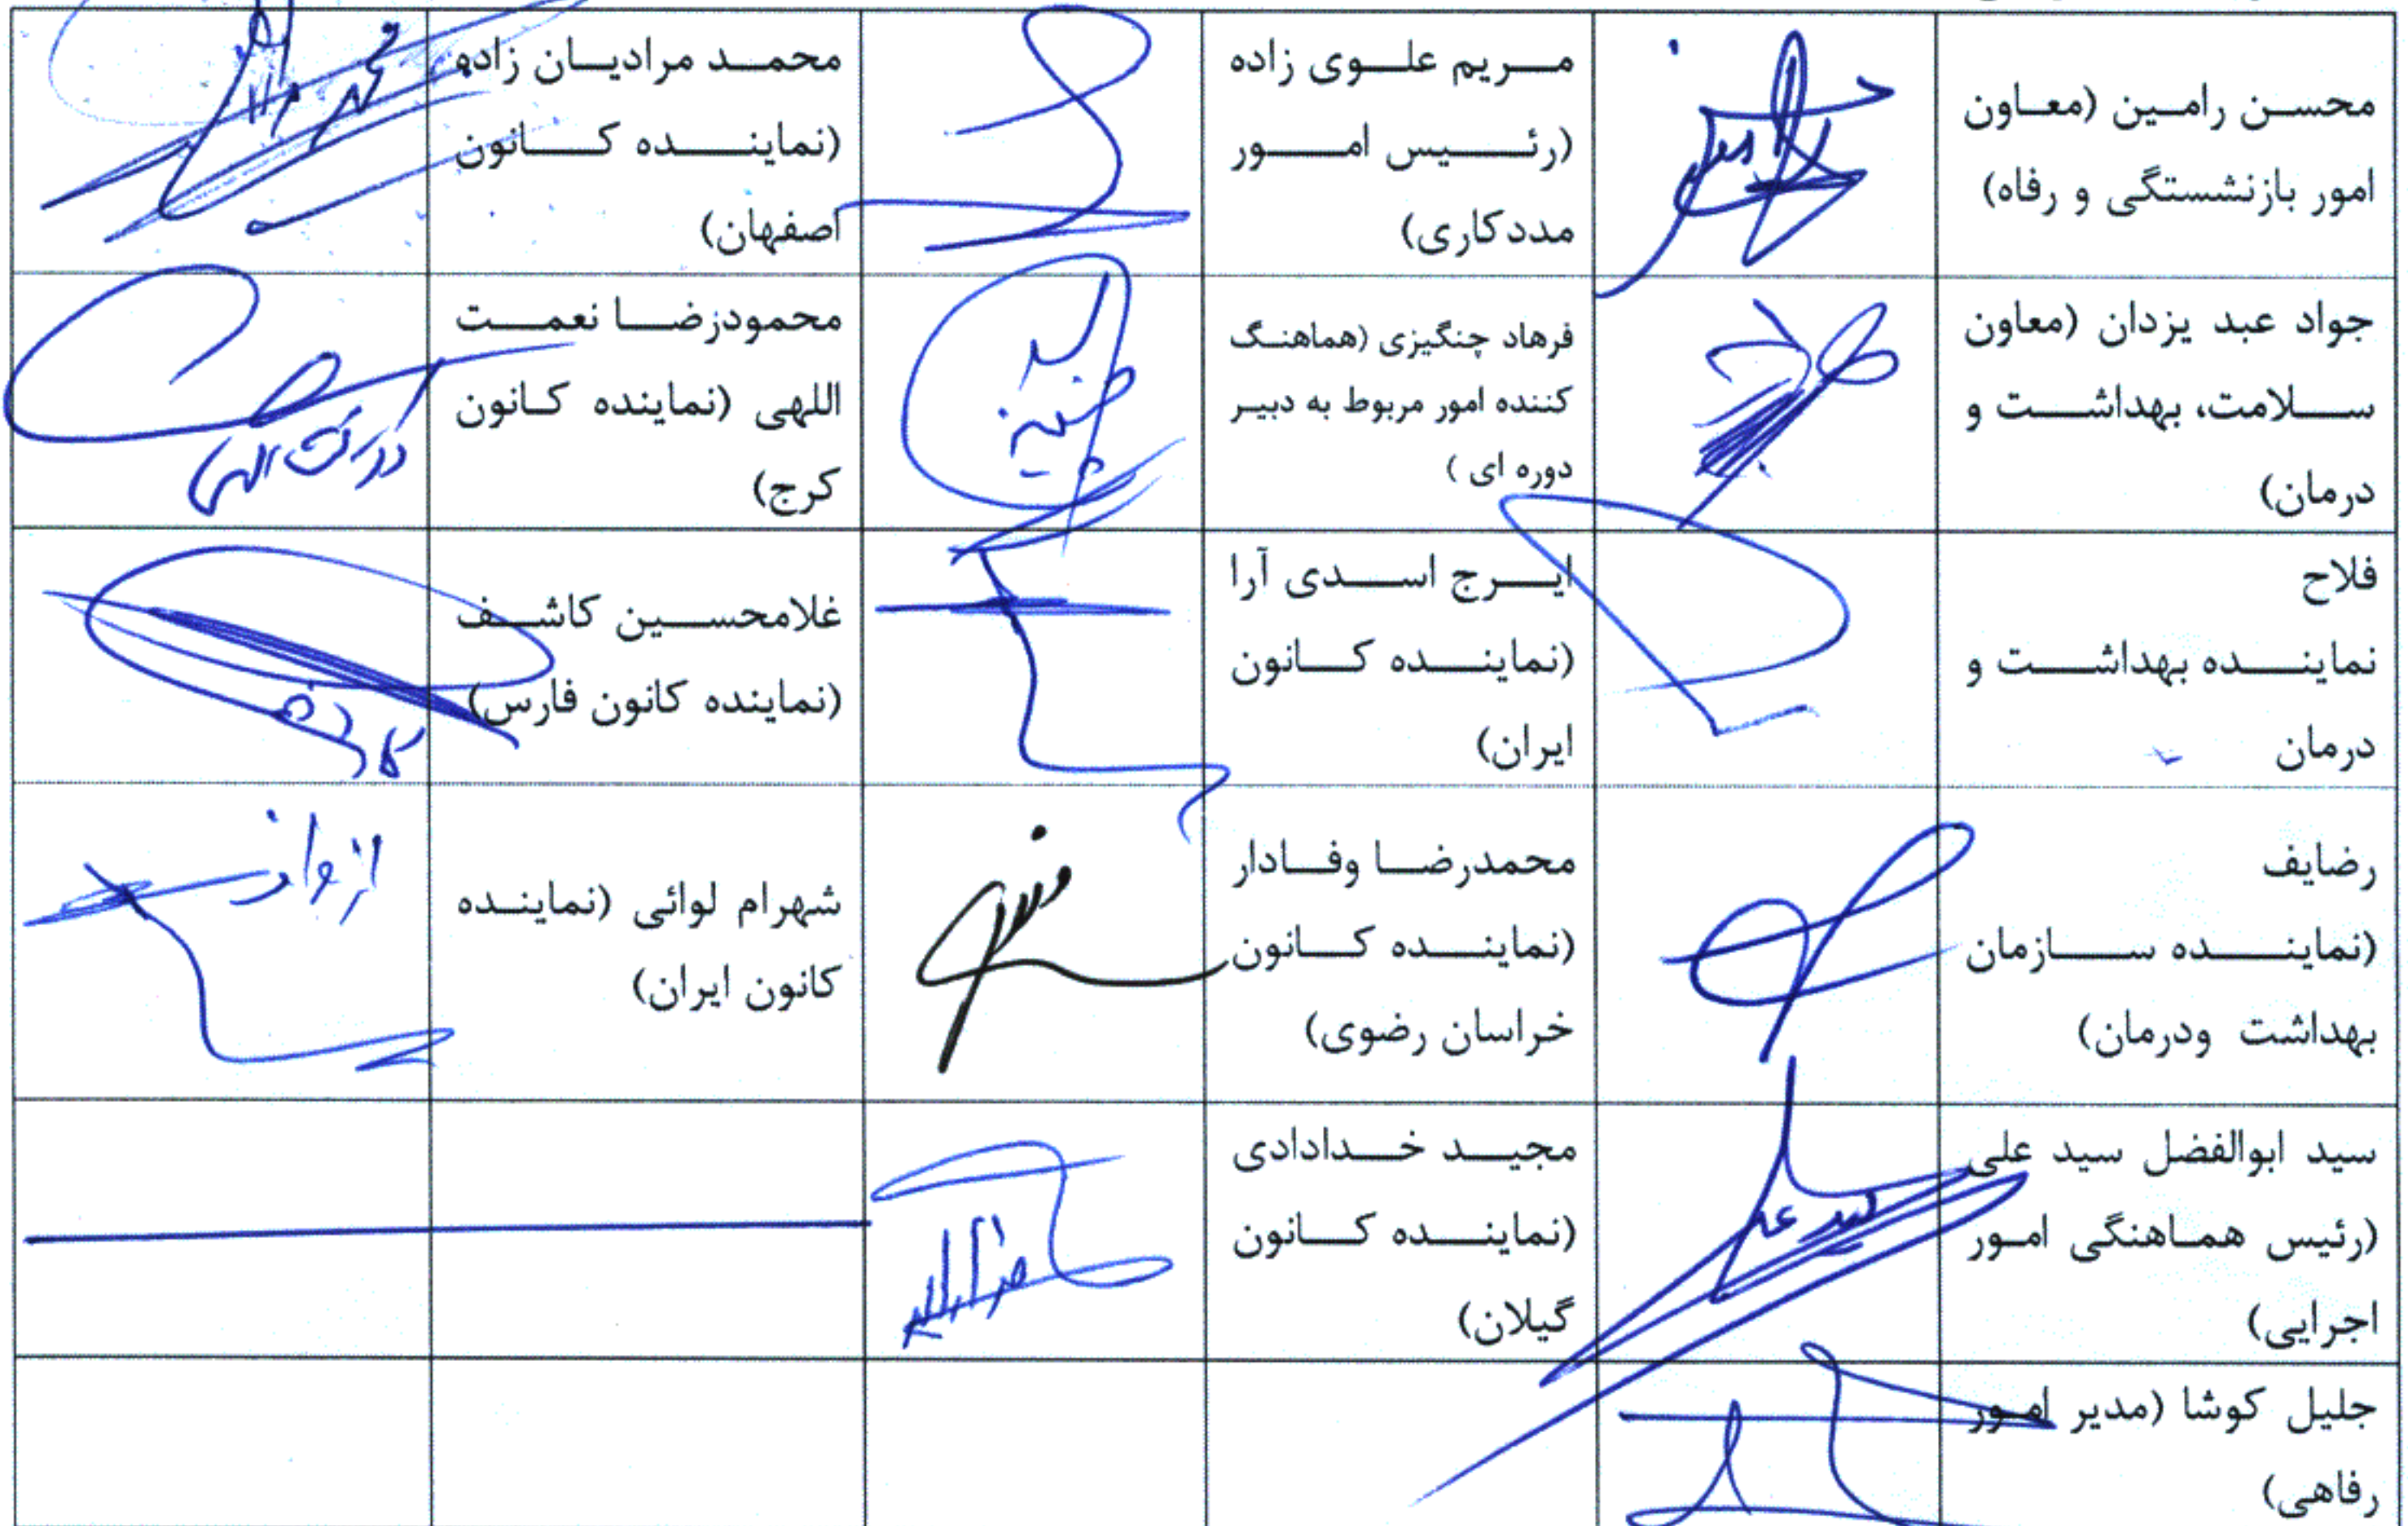 محسن رامین (معاون
امور بازنشستگی و رفاه)
مریم علوی زاده
(رئیس امور
مددکاری)
محمد مرادیان زاده
(نماینده کانون
اصفهان)
جواد عبد یزدان (معاون
سلامت، بهداشت و
درمان)
فرهاد چنگیزی (هماهنگ
کننده امور مربوط به دبیر
دوره ای )
محمودرضا نعمت
اللهی (نماینده کانون
کرج)
فلاح
نماینده بهداشت و
درمان
ایرج اسدی آرا
(نماینده کانون
ایران)
غلامحسین کاشف
(نماینده کانون فارس)
رضایف
(نماینده سازمان
بهداشت ودرمان)
محمدرضا وفادار
(نماینده کانون
خراسان رضوی)
شهرام لوائی (نماینده
کانون ایران)
سید ابوالفضل سید علی
(رئیس هماهنگی امور
اجرایی)
مجید خدادادی
(نماینده کانون
گیلان)
جلیل کوشا (مدیر امور
رفاهی)